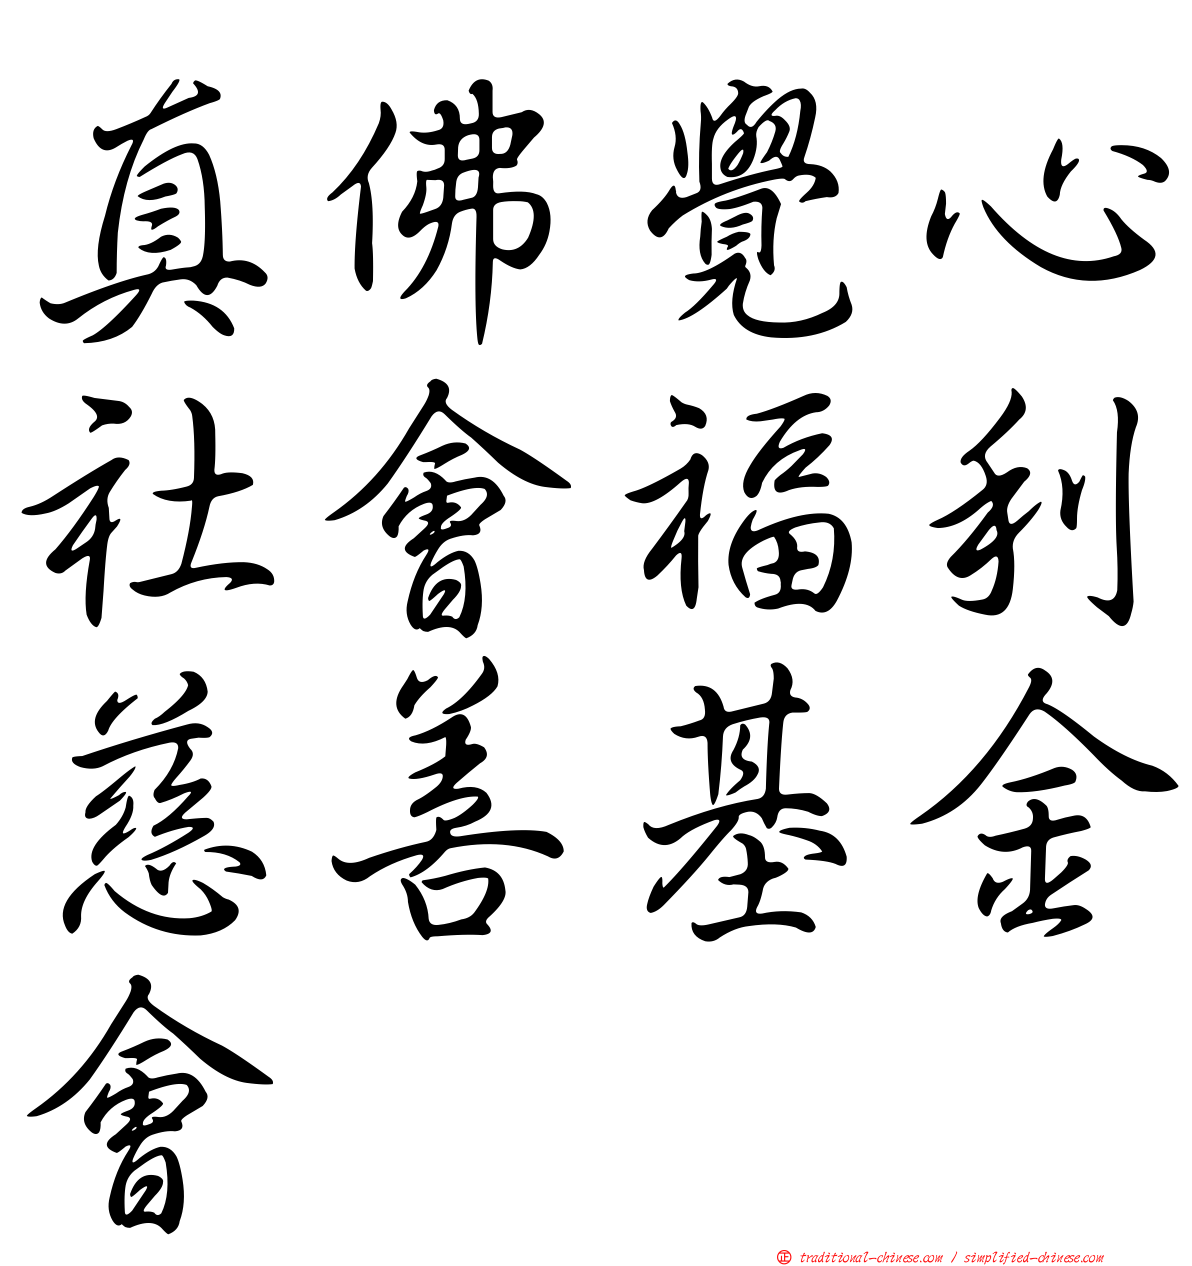 真佛覺心
社會福利
慈善基金
會
㊣ traditional-chinese.com / simplified-chinese.com